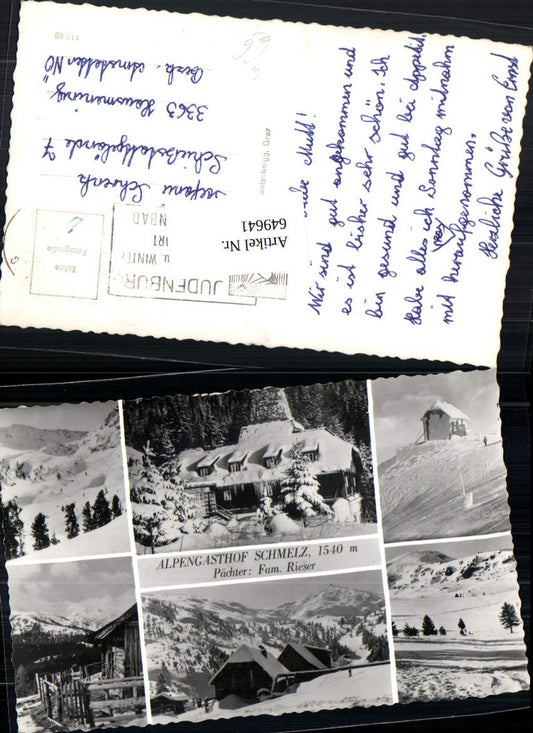 11246
Stefani Schwenk
Schießstattgelände 7
3363 Hausmening
Bez. Amstetten NÖ
Echte
Fotografie
JUDENBURG
u. WINTER
ORT
NBAD
Artikel Nr.
649641
Liebe Mutti!
Wir sind gut angekommen und
es ist bisher sehr schön. Ich
bin gesund und gut bei Appetit.
Habe alles ich Sonntag mitnahm
mit heraufgenommen.
Herzliche Grüße von Ernst
ALPENGASTHOF SCHMELZ, 1540 m
Pächter: Fam. Rieser